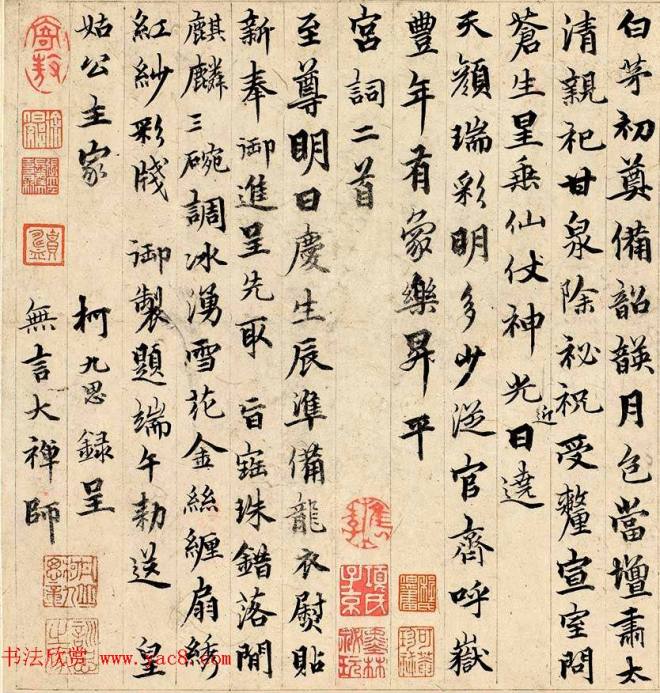 白茅初奠備韶韺月色當壇肅太
清親祀甘泉除祕祝受釐宣室問
蒼生星乘仙仗神光近日遶
天顏瑞彩明多少從官齊呼嶽
豐年有象樂昇平
宮詞二首
至尊明日慶生辰準備龍衣熨貼
新奉 御進呈先取 旨寶珠錯落間
麒麟三碗調冰湧雪花金絲纏扇綉
紅紗彩牋 御製題端午勅送 皇
姑公主家
柯九思録呈
無言大禪師
項氏子京
墨林祕玩
书法欣赏 www.yac8.com